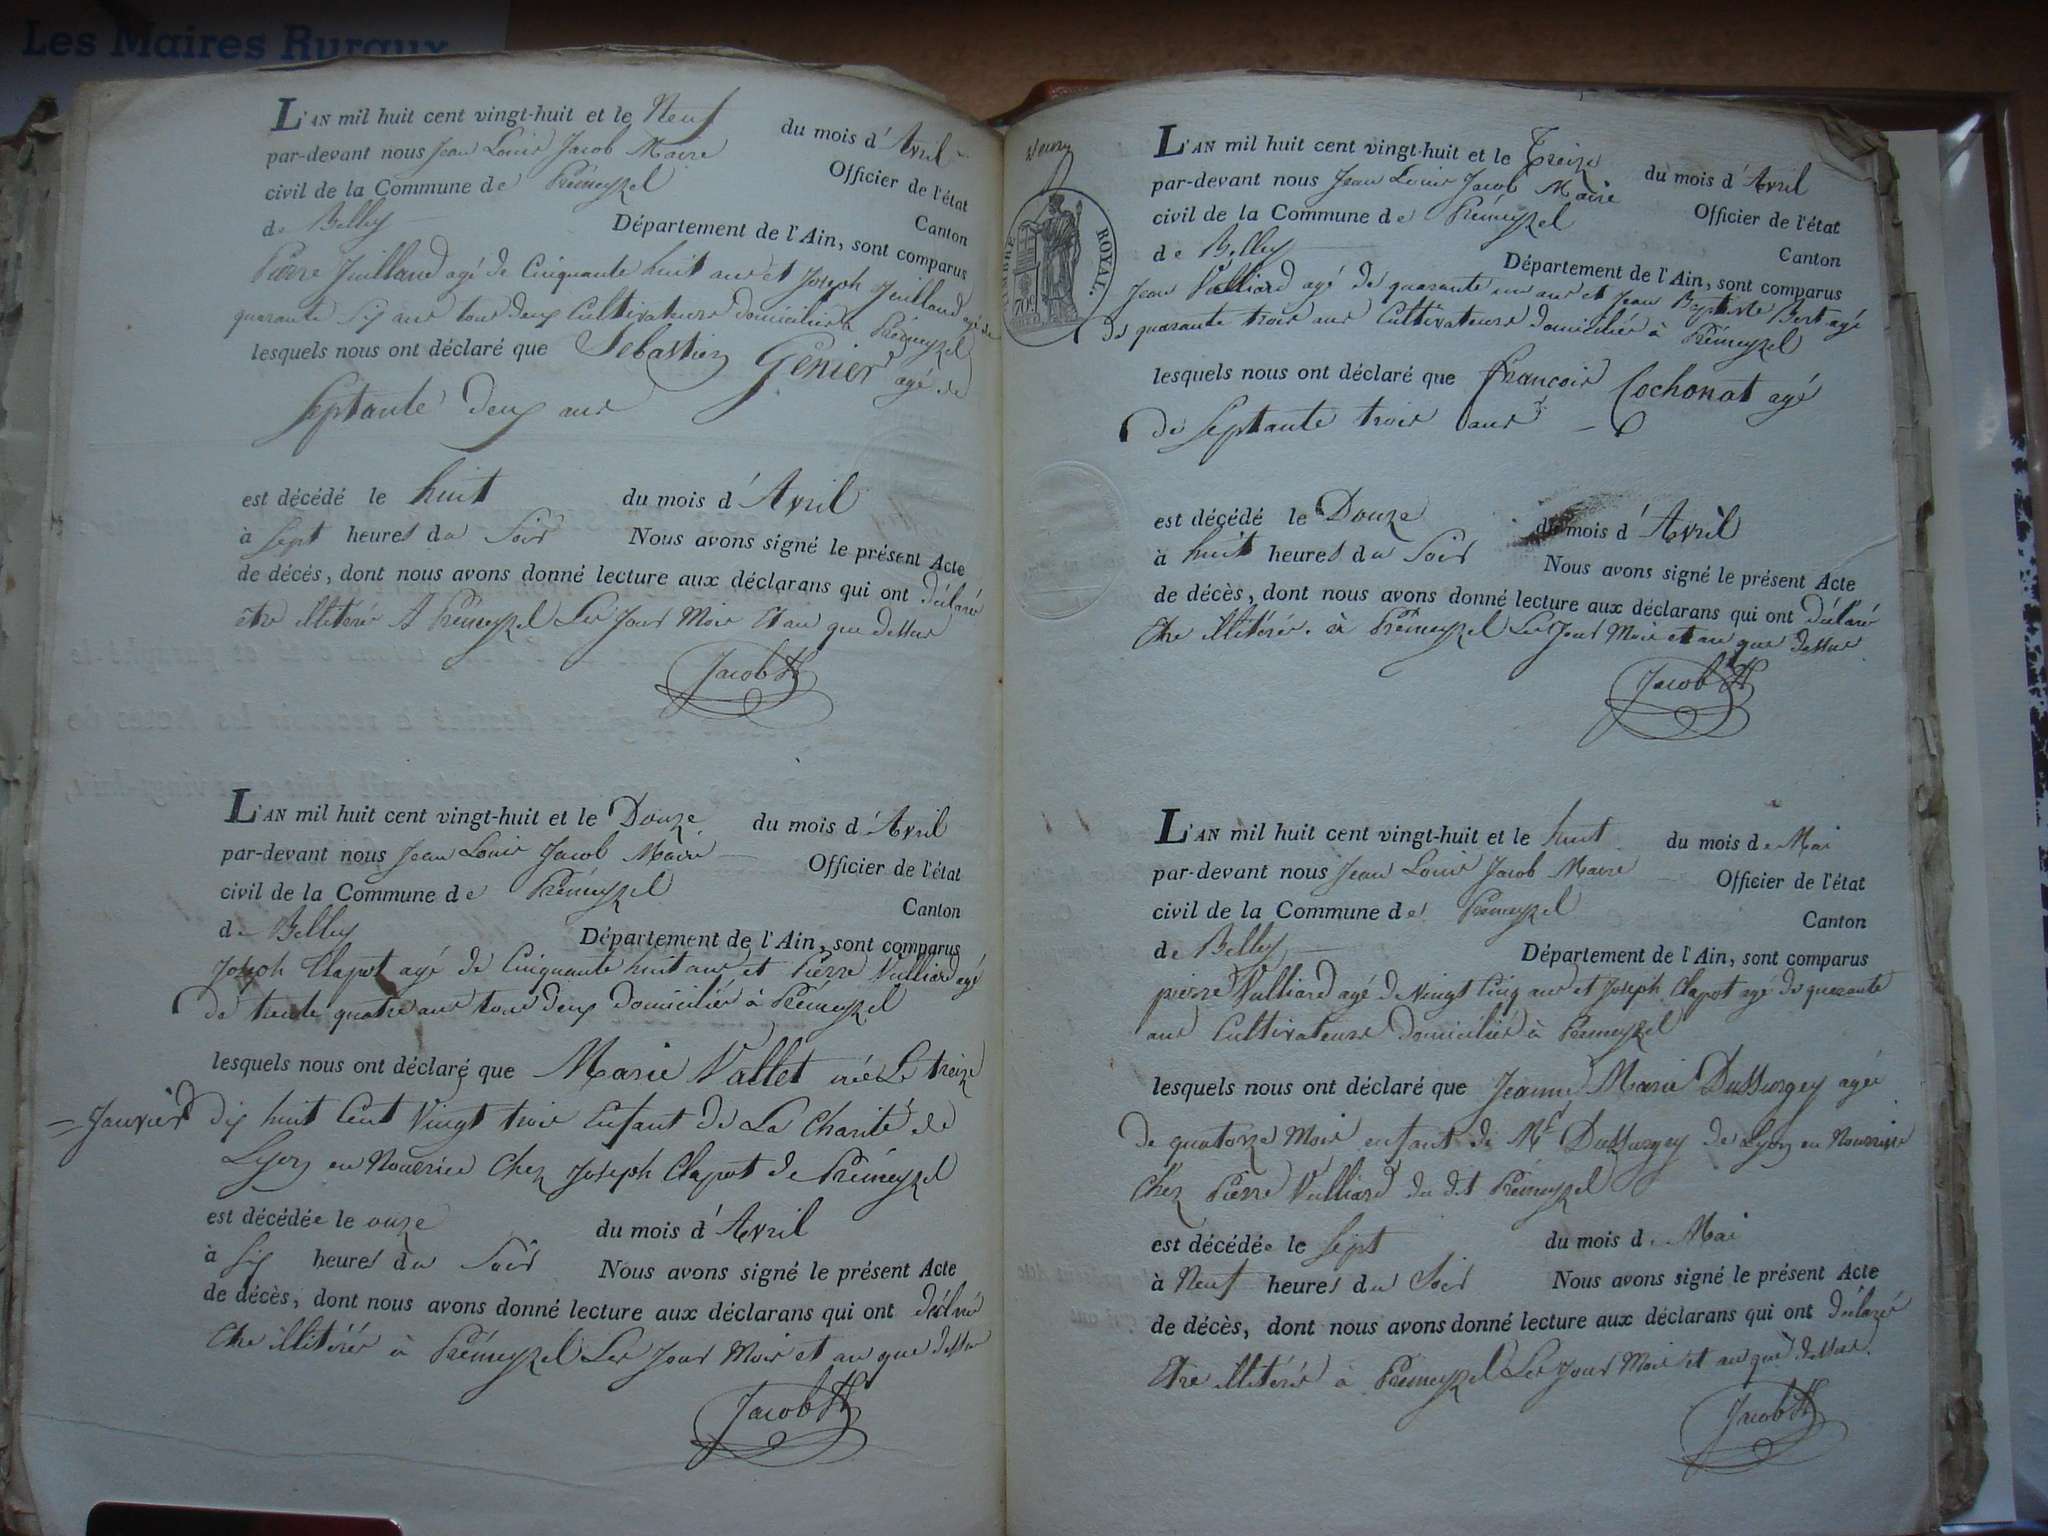 Les Maires Ruraux
L'AN mil huit cent vingt-huit et le Neuf du mois d'Avril
par-devant nous Jean Louis Jacob Maire Officier de l'état
civil de la Commune de Prémeyzel Canton
de Belley Département de l'Ain, sont comparus
Pierre Juilland agé de Cinquante huit ans et Joseph Juilland agé de
quarante Six ans tous deux Cultivateurs domiciliés à Prémeyzel
lesquels nous ont déclaré que Sebastien Génier agé de
Septante deux ans
est décédé le huit du mois d'Avril
à Sept heures du Soir Nous avons signé le présent Acte
de décés, dont nous avons donné lecture aux déclarans qui ont déclaré
être illitérés A Prémeyzel Les Jour Mois Et an que dessus
Jacob
L'AN mil huit cent vingt-huit et le Douze du mois d'Avril
par-devant nous Jean Louis Jacob Maire Officier de l'état
civil de la Commune de Prémeyzel Canton
de Belley Département de l'Ain, sont comparus
Joseph Clapot agé de Cinquante huit ans et Pierre Vulliard agé
de trente quatre ans tous deux domiciliés à Prémeyzel
lesquels nous ont déclaré que Marie Vallet née Le treize
= Janvier dix huit Cent Vingt trois Enfant de La Charité de
Lyon en Nourrice Chez Joseph Clapot de Prémeyzel
est décédée le onze du mois d'Avril
à Six heures du Soir Nous avons signé le présent Acte
de décès, dont nous avons donné lecture aux déclarans qui ont déclaré
Etre illitérés à Prémeyzel Les Jour Mois et an que dessus
Jacob
TIMBRE ROYAL.
70c
L'AN mil huit cent vingt-huit et le Treize du mois d'Avril
par-devant nous Jean Louis Jacob Maire Officier de l'état
civil de la Commune de Prémeyzel Canton
de Belley Département de l'Ain, sont comparus
Jean Vulliard agé de quarante un ans et Jean Baptiste Bert agé
de quarante trois ans Cultivateurs domiciliés à Prémeyzel
lesquels nous ont déclaré que François Cochonat agé
de Septante trois ans
est décédé le Douze du mois d'Avril
à huit heures du Soir Nous avons signé le présent Acte
de décès, dont nous avons donné lecture aux déclarans qui ont déclaré
Etre illitérés. à Prémeyzel Les Jour Mois et an que dessus
Jacob
L'AN mil huit cent vingt-huit et le huit du mois de Mai
par-devant nous Jean Louis Jacob Maire Officier de l'état
civil de la Commune de Prémeyzel Canton
de Belley Département de l'Ain, sont comparus
pierre Vulliard agé de Vingt Cinq ans et Joseph Clapot agé de quarante
ans Cultivateurs domiciliés à Prémeyzel
lesquels nous ont déclaré que Jeanne Marie Dussurgey agée
de quatorze Mois enfant de Mr Dussurgey de Lyon en Nourrice
Chez Pierre Vulliard du dit Prémeyzel
est décédée le Sept du mois de Mai
à Neuf heures du Soir Nous avons signé le présent Acte
de décès, dont nous avons donné lecture aux déclarans qui ont déclaré
Etre illitérés à Prémeyzel Les Jour Mois et an que dessus.
Jacob